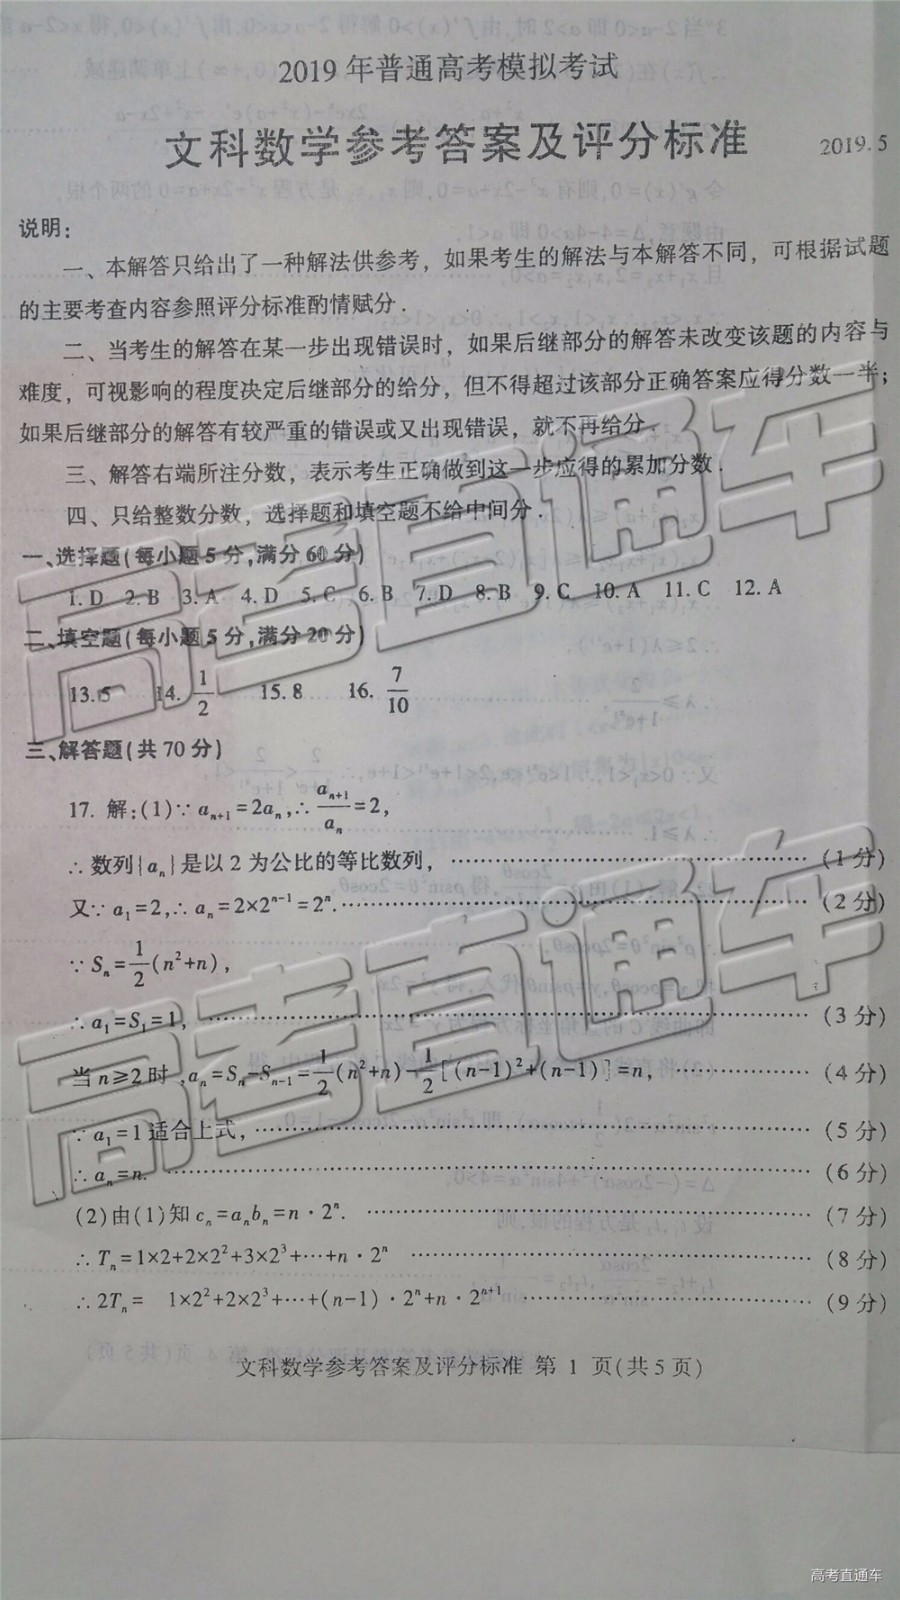 2019年普通高考模拟考试
文科数学参考答案及评分标准 2019.5
说明:
一、本解答只给出了一种解法供参考，如果考生的解法与本解答不同，可根据试题
的主要考查内容参照评分标准酌情赋分.
二、当考生的解答在某一步出现错误时，如果后继部分的解答未改变该题的内容与
难度，可视影响的程度决定后继部分的给分，但不得超过该部分正确答案应得分数一半;
如果后继部分的解答有较严重的错误或又出现错误，就不再给分.
三、解答右端所注分数，表示考生正确做到这一步应得的累加分数.
四、只给整数分数，选择题和填空题不给中间分.
一、选择题(每小题5分,满分60分)
1.D 2.B 3.A 4.D 5.C 6.B 7.D 8.B 9.C 10.A 11.C 12.A
二、填空题(每小题5分,满分20分)
13.5 14. 1/2 15.8 16. 7/10
三、解答题(共70分)
17. 解:(1)∵ aₙ₊₁=2aₙ,∴ aₙ₊₁/aₙ=2,
∴ 数列{aₙ}是以2为公比的等比数列，…………(1分)
又∵ a₁=2,∴ aₙ=2×2ⁿ⁻¹=2ⁿ.…………(2分)
∵ Sₙ=1/2(n²+n),
∴ a₁=S₁=1,…………(3分)
当n≥2时,aₙ=Sₙ-Sₙ₋₁=1/2(n²+n)-1/2[(n-1)²+(n-1)]=n,…………(4分)
∵ a₁=1适合上式,…………(5分)
∴ aₙ=n.…………(6分)
(2)由(1)知cₙ=aₙbₙ=n·2ⁿ.…………(7分)
∴ Tₙ=1×2+2×2²+3×2³+…+n·2ⁿ…………(8分)
∴ 2Tₙ= 1×2²+2×2³+…+(n-1)·2ⁿ+n·2ⁿ⁺¹…………(9分)
文科数学参考答案及评分标准 第 1 页(共5页)
高考直通车
高考直通车
高考直通车